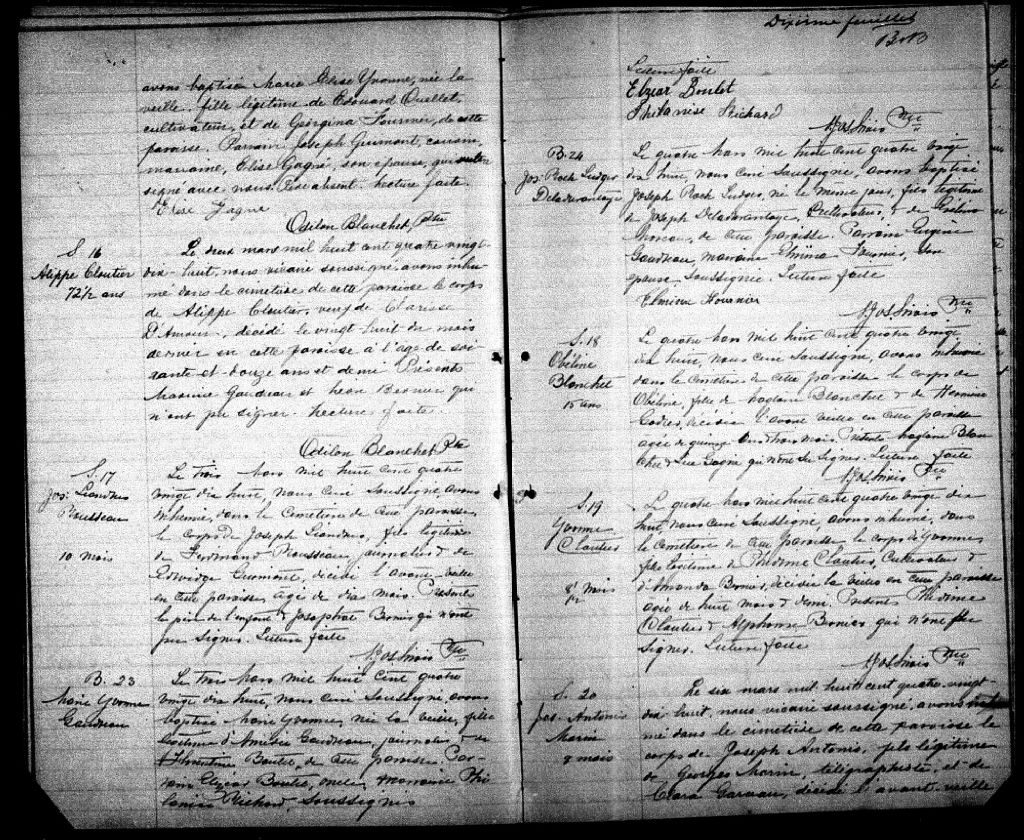 avons baptisé Marie Elise Yvonne, née la
veille, fille légitime de Edouard Ouellet,
cultivateur, et de Georgina Fournier, de cette
paroisse. Parrain Joseph Guimont, cousin,
marraine, Elise Gagné, son épouse, qui
signé avec nous. Père absent. Lecture faite.
Elise Gagné
Odilon Blanchet, Ptre
S. 16
Alippe Cloutier
72½ ans
Le deux mars mil huit cent quatre vingt-
dix-huit, nous vicaire soussigné, avons inhu-
mé dans le cimetière de cette paroisse le corps
de Alippe Cloutier, veuf de Clarisse
D'Amours, décédé le vingt-huit du mois
dernier en cette paroisse à l'age de soi
xante et douze ans et demi. Présents
Maxime Gaudreau et Léon Bernier qui
n'ont pu signer. Lecture faite.
Odilon Blanchet Ptre
S. 17
Jos: Liandres
Rousseau
10 mois
Le trois Mars mil huit cent quatre
vingt dix huit, nous curé soussigné, avons
inhumé, dans le cimetière de cette paroisse
le corps de Joseph Liandres, fils légitime
de Ferdinand Rousseau, journalier & de
Edwidge Guimont, décédé l'avant-veille
en cette paroisse agé de dix mois. Présents
le père de l'enfant & Josaphat Bernier qui n'ont
pu signer. Lecture faite
Ptre
B. 23
Marie Yvonne
Gaudreau
Le trois Mars mil huit cent quatre
vingt dix huit, nous curé soussigné avons
baptisé Marie Yvonne, née la veille, fille
légitime d'Amédée Gaudreau, journalier & de
Boulet, de cette paroisse Par-
rain Elzéar Boulet, oncle, marraine Phi-
Richard, soussignés
Dixième feuillet
Lecture faite
Elzear Boulet
Philanise Richard
Ptre
B. 24
Jos: Roch Judger
Deladurantaye
Le quatre Mars mil huit cent quatre vingt
dix huit, nous curé soussigné, avons baptisé
Joseph Roch Judger, né le même jour, fils légitime
de Joseph Deladurantaye, cultivateur, & de
Morneau, de cette paroisse. Parrain Eugène
Gaudreau, marraine Fournier, son
épouse soussignée. Lecture faite
Fournier
Ptre
S. 18
Obéline
Blanchet
15 ans
Le quatre Mars mil huit cent quatre vingt
dix huit, nous curé soussigné, avons inhumé
dans le cimetière de cette paroisse le corps de
Obéline, fille de Blanchet & de
décédée l'avant veille en cette paroisse
agée de quinze ans & trois mois. Présents Blan
chet & Gagné qui n'ont su signer. Lecture faite
Ptre
S. 19
Yvonne
Cloutier
8½ mois
Le quatre Mars mil huit cent quatre vingt dix
huit nous curé soussigné, avons inhumé, dans
le cimetière de cette paroisse le corps d'Yvonne
fille légitime de Phidime Cloutier, cultivateur &
d'Amanda Bernier, décédée la veille en cette paroisse
agée de huit mois & demi. Présents Phidime
Cloutier & Alphonse Bernier qui n'ont pu
signer. Lecture faite
Ptre
S. 20
Jos. Antonio
Morin
2 mois
Le six mars mil huit cent quatre-vingt
dix huit, nous vicaire soussigné, avons inhu
mé dans le cimetière de cette paroisse le
corps de Joseph Antonio, fils légitime
de Georges Morin, télégraphiste, et de
Clara Garneau, décédé l'avant-veille